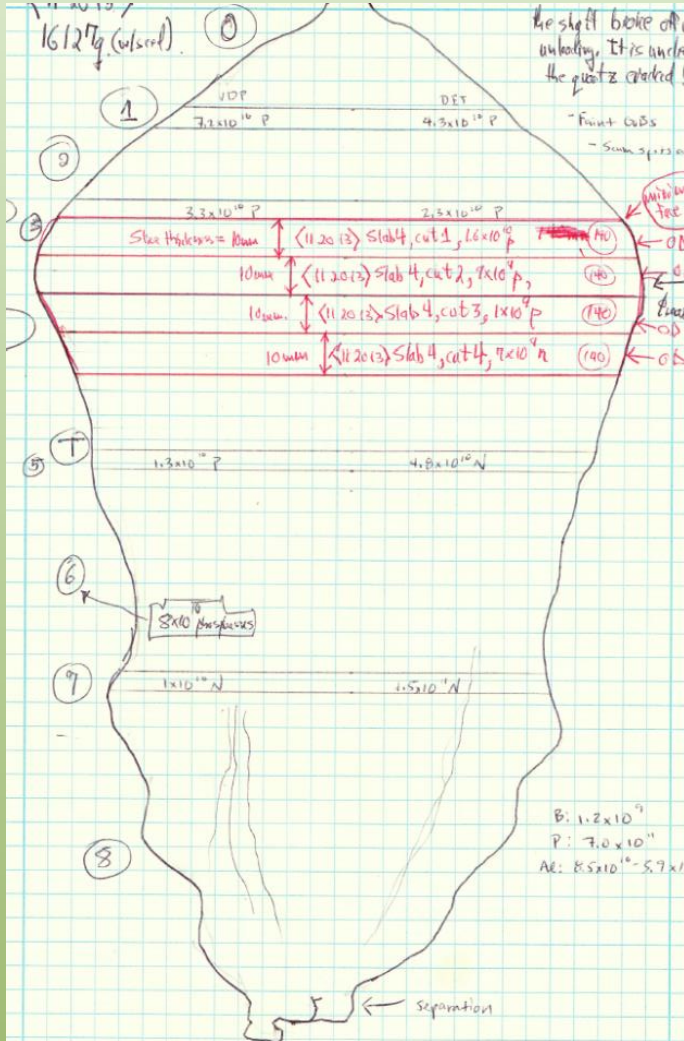 16127g (w/seed)
0
the shaft broke off
unloading. It is
the quartz cracked
VDP DET
1 7.2x10¹⁰ P 4.3x10¹⁰ P
- Faint GoBs
2
3.3x10¹⁰ P 2.3x10¹⁰ P
3
Slice thickness = 10mm <11 20 13> Slab 4, cut 1, 1.6x10¹⁰ p 140 OD
10mm <11 20 13> Slab 4, cut 2, 9x10⁹ p, 140
10mm. <11 20 13> Slab 4, cut 3, 1x10⁹ p 140 OD
10mm <11 20 13> Slab 4, cut 4, 7x10⁹ n 140 OD
T
5 1.3x10¹⁰ P 4.8x10¹⁰ N
6
8x10¹⁰ phosphorus
7 1x10¹⁰ N 1.5x10¹¹ N
B: 1.2x10⁹
P: 7.0x10¹¹
8
Al: 8.5x10¹⁰ - 5.9x1
separation